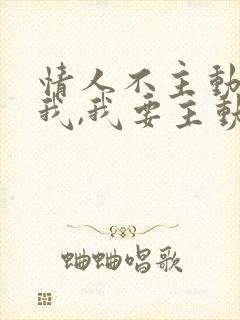 情人不主动
我,我要主动
蛐蛐唱歌